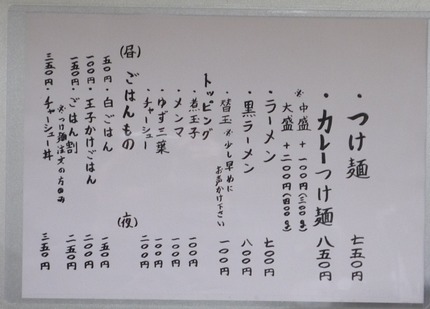 ・つけ麺 七五〇円
・カレーつけ麺 八五〇円
※中盛 +一〇〇円(三〇〇g)
大盛 +二〇〇円(四〇〇g)
・ラーメン 七〇〇円
・黒ラーメン 八〇〇円
・替玉 ※少し早めにお声かけ下さい 一〇〇円
トッピング
・煮玉子 一〇〇円
・メンマ 一〇〇円
・ゆず三葉 一〇〇円
・チャーシュー 二〇〇円
(昼) ごはんもの (夜)
五〇円 ・白ごはん 一五〇円
一〇〇円 ・玉子かけごはん 二〇〇円
一五〇円 ・ごはん割 二五〇円
※つけ麺注文の方のみ
三五〇円 ・チャーシュー丼 三五〇円